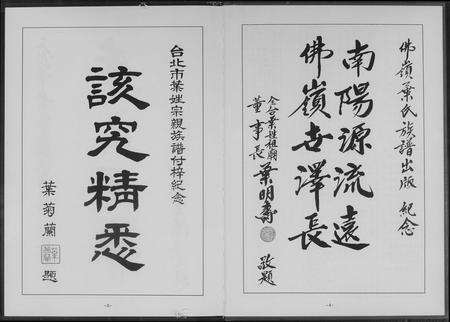 佛嶺葉氏族譜出版 紀念
南陽源流遠
佛嶺世澤長
全台葉姓祖廟
董事長 葉明壽 敬題
台北市葉姓宗親族譜付梓紀念
該究精悉
葉菊蘭 題